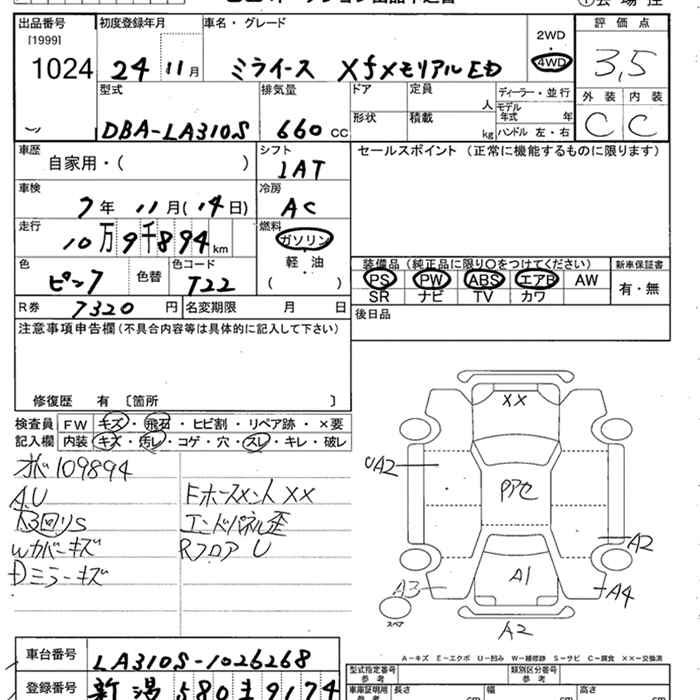 出品番号
[1999]
1024
初度登録年月
24 11月
車名・グレード
ミライース XfメモリアルED
2WD
・
4WD
評価点
3,5
外装 内装
C C
型式
DBA-LA310S
排気量
660 CC
ドア
形状
定員
人
積載
kg
ディーラー・並行
モデル
年式 年
ハンドル 左・右
車歴
自家用・( )
シフト
IAT
セールスポイント (正常に機能するものに限ります)
車検
7年 11月(14日)
冷房
AC
走行
10万9千894km
燃料
ガソリン
軽・油
( )
色
ピンク
色替
色コード
T22
装備品 (純正品に限り○をつけてください)
PS PW ABS エアB AW
SR ナビ TV カワ
新車保証書
有・無
R券
7320円
名変期限 月 日
後日品
注意事項申告欄(不具合内容等は具体的に記入して下さい)
修復歴 有 〔箇所 〕
検査員
記入欄
FW キズ・飛石・ヒビ割・リペア跡・×要
内装 キズ・汚レ・コゲ・穴・スレ・キレ・破レ
109894
A,U
回りS
Wカバーキズ
Dミラーキズ
Fホースメント XX
エンドパネル歪
Rフロア U
XX
UA2
PアセA1
A2
A3
A4
A2
スペア
A―キズ E―エクボ U―凹み W―補修跡 S―サビ C―腐食 XX―交換済
車台番号
LA310S-1026268
登録番号
新潟 580 ま 9174
型式指定番号
参考
類別区分番号
参考
車庫証明用
参考
長さ
cm
幅
cm
高さ
cm